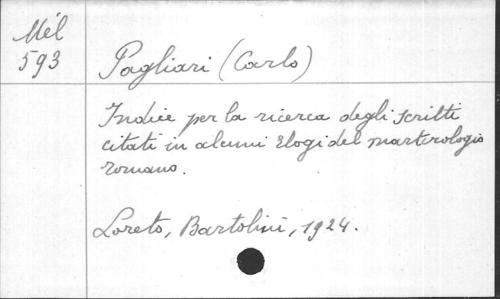 Mél
593
Pagliari (Carlo)
Indice per la ricerca degli scritti
citati in alcuni Elogi del marterologio
romano.
Loreto, Bartolini, 1924.